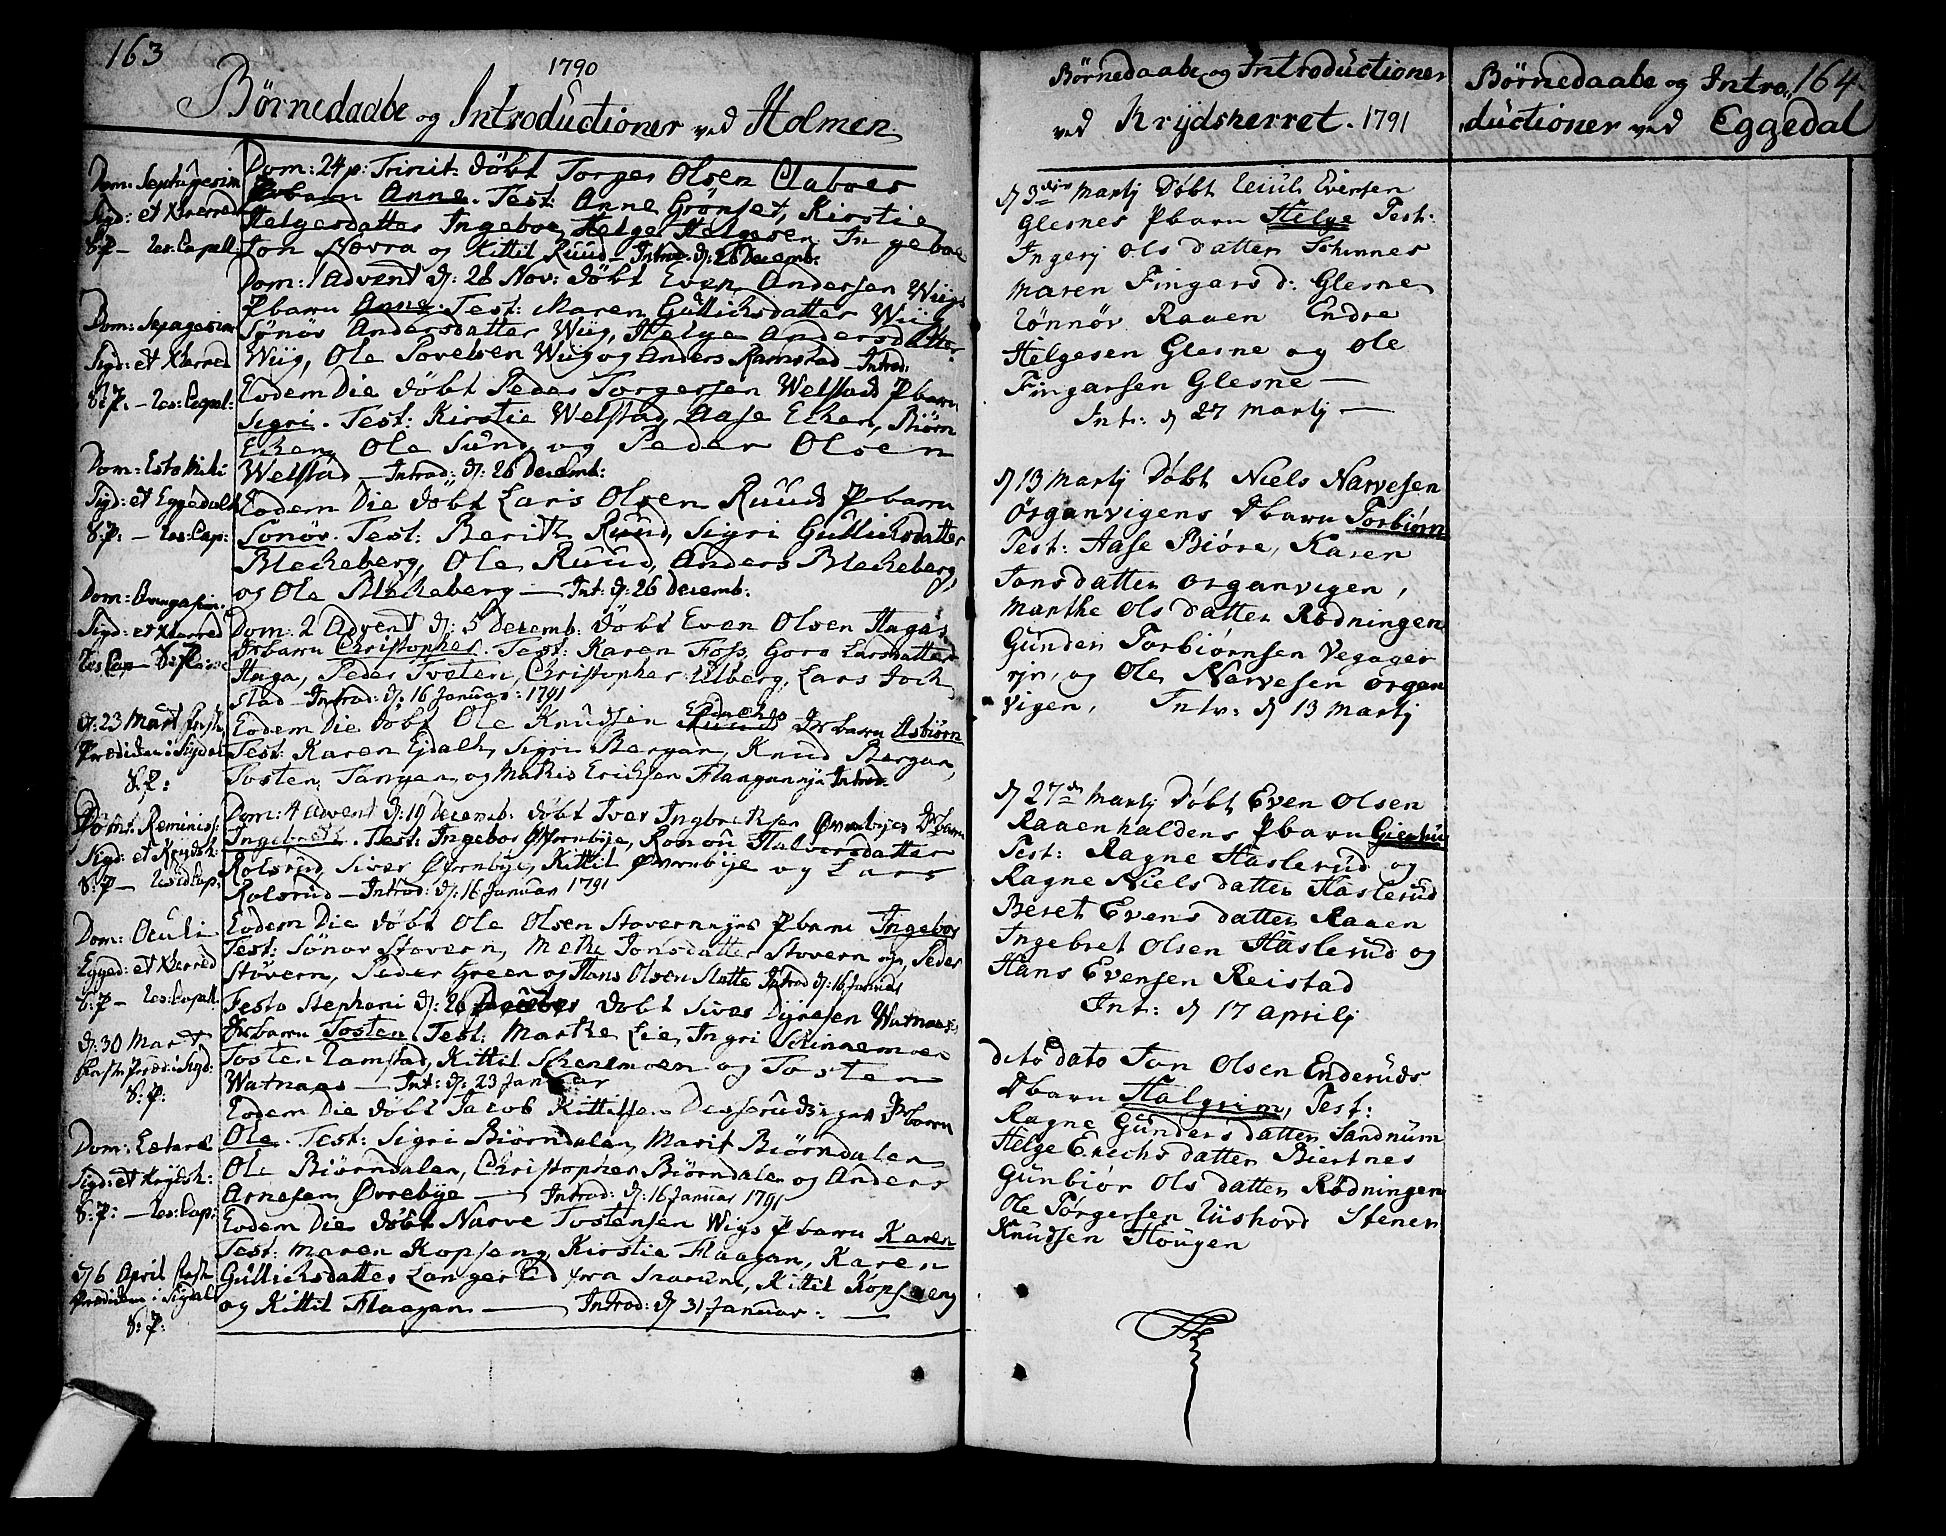 163
1790
Børnedaabe og Introductioner ved Holmen
Dom: Septuagesim
Sigd: et Kherred
S:P – Res: Capell:
Dom: Sexagesim
Sigd: et Kherred
S:P: – Res: Capel:
Dom: Esto Mihi
Sigd: et Eggedahl
S:P: – Res: Cap:
Dom: Qvagasim:
Sigd: et Kherred
Res Cap – S: P
d: 23 Mart Faste
Prædiken i Sigdal
S: P:
Dom: Reminisc:
Sigd: et Krydsh:
S: P – Resid Cap:
Dom: Oculi
Egged: et Kherred
S: P – Res: Capell.
d: 30 Mart
Faste Præd: i Sigd:
S: P:
Dom: Lætare
Sigd: et Krydsh:
S: P: – Res: Cap:
d 6 April Fast
Prædiken i Sigdal
S: P:
Dom: 24 p: Trinit: døbt Torger Olsen Claboes
Pbarn Anne. Test: Anne Grønset, Kirstie
Helgesdatter Ingeboe, Helge Helgesen Ingeboe
Jon Nævra og Kittil Ruud – Introd. d: 26 Decemb:
Dom: 1 Advent d: 28 Nov: døbt Even Andersen Wiigs
Pbarn Anne. Test: Maren Gullichsdatter Wiig
Sønøv Andersdatter Wiig, Helge Andersdatter
Wiig, Ole Povelsen Wiig og Anders Ramstad – Introd:
Eodem Die døbt Peder Torgersen Welstads Pbarn
Sigri. Test: Kirstie Welstad, Aase Eken, Biørn
Eken, Ole Sund, og Peder Olsen
Welstad – Introd: d: 26 Decemb:
Eodem Die døbt Lars Olsen Ruuds Pbarn
Sønøv. Test: Berith Ruud, Sigri Gullichsdatter
Blekeberg, Ole Ruud, Anders Blekeberg,
og Ole Blekeberg – Int: d: 26 Decemb:
Dom: 2 Advent d: 5 Decemb: døbt Even Olsen Hagas
Drbarn Christopher. Test: Karen Foss, Goro Larsdatter
Haga, Peder Tveten, Christopher Ulberg, Lars Joch
stad – Introd: d: 16 Januar: 1791
Eodem Die døbt Ole Knudsen Ruuds Drbarn Asbiørn
Test: Karen Ejdalh, Sigri Bergan, Knud Bergan,
Tosten Tangen, og Mathis Erichsen Flangannye Introd.
Dom: 4 Advent d: 19 Decemb: døbt Iver Ingbrecktsen Øvrnbyes Drbarn
Ingebrett. Test: Ingebor Øvornbye, Ronou Halvorsdatter
Rolsrud, Siver Øvrnbye, Kittil Øvernbye og Lars
Rolsrud – Introd: d: 16 Januar 1791
Eodem Die døbt Ole Olsen Stovernnyes Pbarn Ingebor
Test: Sønov Stovern, Methe Jonsdatter Stovern nye, Peder
Stovern, Peder Green og Hans Olsen Slatte Introd d: 16 Januar
Festo Stephani d: 26 Decebr døbt Siver Dyresen Watnaas
Drbarn Tosten. Test: Marthe Lie, Ingri Schinnemoen
Tosten Ramstad, Kittil Schenemoen og Tosten
Watnaas – Int: d: 23 Januar
Eodem Die døbt Jacob Kittilsen Desserudsejes Drbarn
Ole. Test: Sigri Biørndalen, Marit Biørndalen
Ole Biørndalen, Christopher Biørndalen og Anders
Arnesen Øvrebye – Introd: d: 16 Januar 1791
Eodem Die døbt Narve Tostensen Wigs Pbarn Karen
Test: Maren Kopseng, Kirstie Flaagan, Karen
Gullichsdatter Langerud fra Snarum, Kittil Kopseng
og Kittil Flaagan – Introd: d 31 Januar: –
Børnedaabe og Introductioner
ved Krydsherret. 1791
d 3die Martj Døbt Eivuls Eversen
Glesnes Pbarn Helge Test:
Ingerj Olsdatter Schinnes
Maren Fingarsd: Glesne
Rønnøv Raaen Endre
Helgesen Glesne og Ole
Fingarsen Glesne –
Int: d 27 Martj –
d 13 Martj Døbt Niels Narvesen
Ørganvigens Dbarn Torbiørn
Test: Aase Biøre, Karen
Jonsdatter Organvigen,
Marthe Olsdatter Rødningen
Gunder Torbiørnsen Vegager
ejn, og Ole Narvesen Organ
vigen, Intr: d 13 Martj
d 27de Martj Døbt Even Olsen
Raaenhaldens Pbarn Gienbiu
Test: Ragne Haslerud og
Ragne Nielsdatter Haslerud
Beret Evensdatter Raaen
Ingebret Olsen Haslerud og
Hans Evensen Reistad
Int: d 17 Aprilj
dito dato Jon Olsen Enderuds
Dbarn Halgrim, Test:
Ragne Gundersdatter Sandnum
Helge Erechsdatter Biertnes
Gunbiør Olsdatter Rødningen
Ole Torgersen Riishovd Stener
Knudsen Hougen
Børnedaabe og Intro„
„ductioner ved Eggedal
164